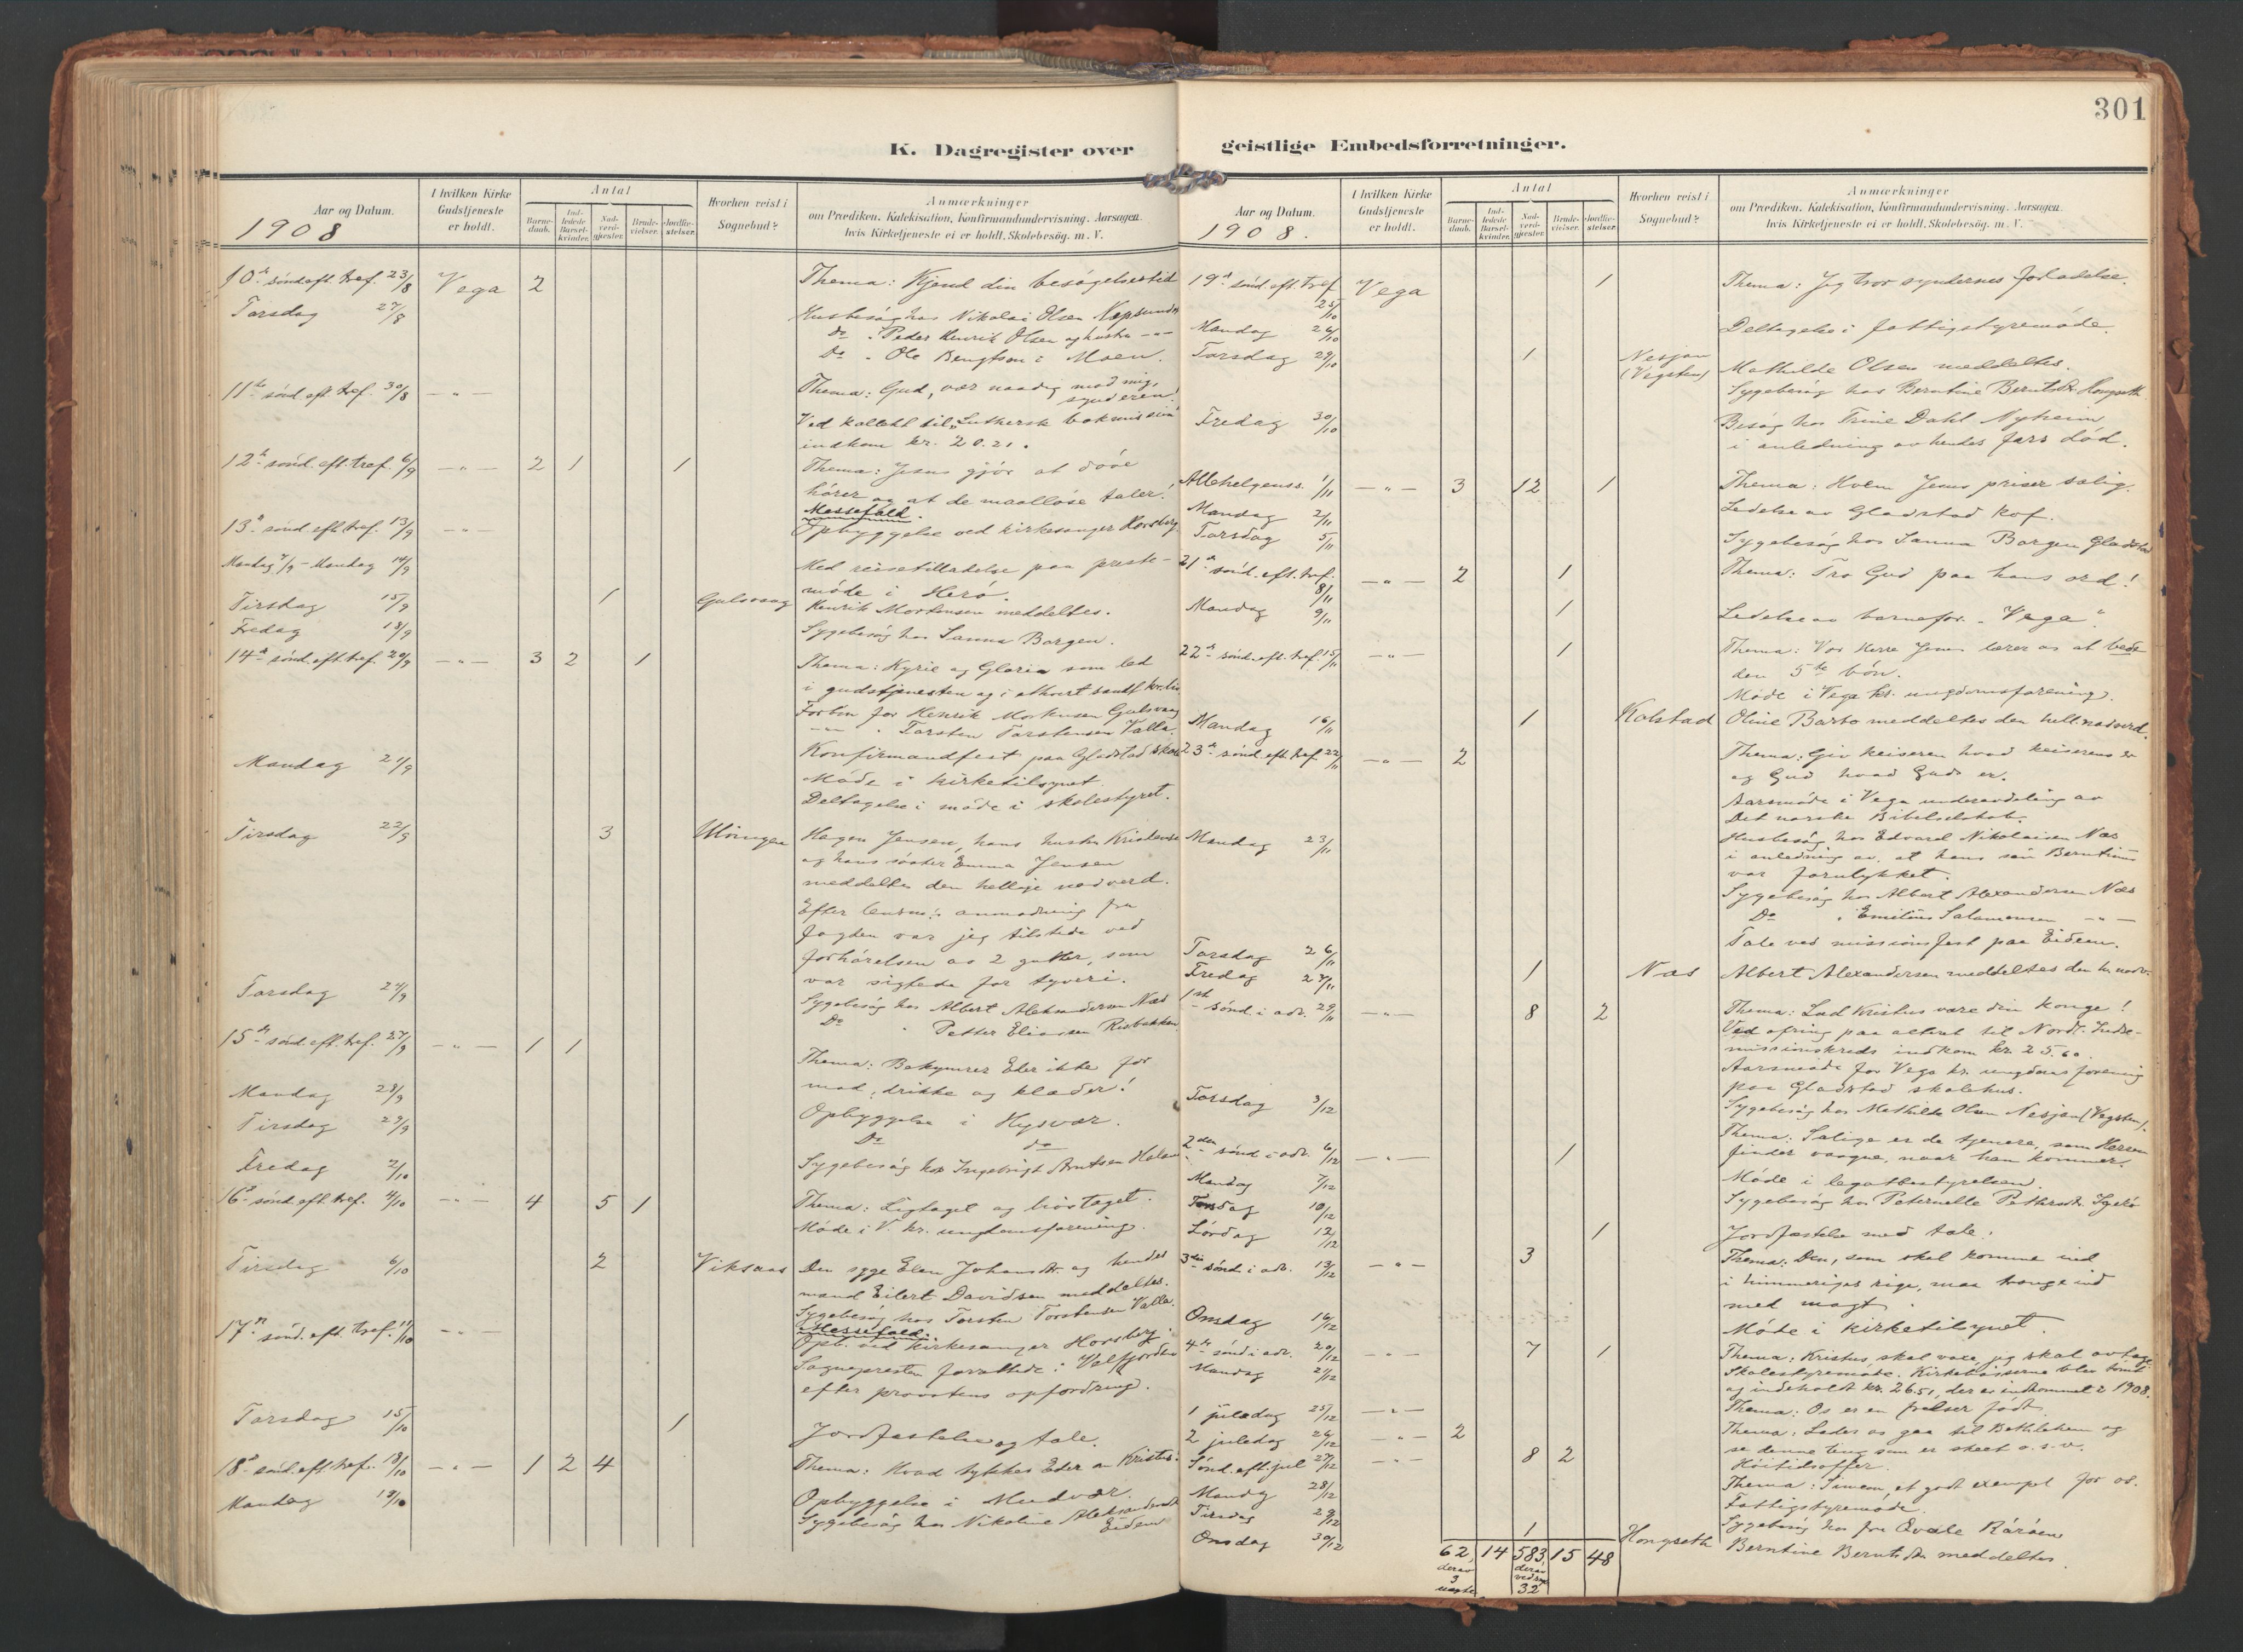 301
K. Dagregister over geistlige Embedsforretninger.
Aar og Datum.
1908
I hvilken Kirke Gudstjeneste er holdt.
Antal
Barne-daab.
Ind-ledede Barsel-kvinder.
Nad-verd-gjester.
Brude-vielser.
Jordfæ-stelser.
Hvorhen reist i Sognebud?
Anmærkninger
om Prædiken, Katekisation, Konfirmandundervisning, Aarsagen
hvis Kirketjeneste ei er holdt, Skolebesøg. m. V.
10de sønd. eft. tref. 23/8 Vega 2 Thema: Kjend din besøgelsestid
Torsdag 27/8 Husbesøg hos Nikolai Olsen
Do " Peder Henrik Olsen og hustru —"—
Do " Ole Bengtson i Moen.
11te sønd eft tref. 30/8 —"— Thema: Gud, vær naadig mod mig,
synderen!
Ved kollekt til "Luthersk bokmission"
indkom kr. 20.21.
12te sønd. eft. tref. 6/9 —"— 2 1 1 Thema: Jesus gjør at døve
hører og at de maalløse taler!
Messefald.
13de sønd eft. tref. 13/9 —"— Opbyggelse ved kirkesanger Horsberg
Mandag 7/9 – Mandag 14/9 Med reisetilladelse paa preste-
møde i Herø.
Tirsdag 15/9 1 Gulsvaag Henrik Mortensen meddeltes.
Fredag 18/9 Sygebesøg hos Sanna Borgen.
14de sønd. eft. tref. 20/9 —"— 3 2 1 Thema: Kyrie og Gloria som led
i gudstjenesten og i ethvert sandt kr. liv
Forbøn for Henrik Mortensen Gulsvaag
—"— " Torsten Torstensen Valla.
Mandag 21/9 Konfirmandfest paa Gladstad skole
Møde i kirketilsynet.
Deltagelse i møde i skolestyret.
Tirsdag 22/9 3 Hagen Jensen, hans hustru
og hans søster Emma Jensen
meddeltes den hellige nadverd.
Efter anmodning fra
fogden var jeg tilstede ved
forhørelsen av 2 gutter, som
var sigtede for tyveri.
Torsdag 24/9 Sygebesøg hos Albert Alexandersen Næs
Do " Petter Eliassen Risbakken
15de sønd. eft. tref. 27/9 —"— 1 1 Thema: Bekymrer Eder ikke for
mad, drikke og klæder!
Mandag 28/9 Opbyggelse i Hysvær.
Tirsdag 29/9 Do do
Fredag 2/10 Sygebesøg hos Ingebrigt Arntsen
16de sønd. eft. tref. 4/10 —"— 4 5 1 Thema: Ligtoget og livstoget.
Møde i V. kr. ungdomsforening.
Tirsdag 6/10 2 Viksaas Den syge Elen Johansdtr. og hendes
mand Eilert Davidsen meddeltes.
Sygebesøg hos Torsten Torstensen Valla.
17de sønd. eft. tref. 11/10 —"— Messefald.
Opb. ved kirkesanger Horsberg.
Sognepresten forrettede i Velfjorden
efter provstens opfordring.
Torsdag 15/10 1 Jordfæstelse og tale.
18de sønd. eft. tref. 18/10 —"— 1 2 4 Thema: Hvad tykkes Eder om Kristus?
Mandag 19/10 Opbyggelse i Mudvær.
Sygebesøg hos Nikoline Aleksandersdtr
Eidem
Aar og Datum.
1908.
I hvilken Kirke Gudstjeneste er holdt.
Antal
Barne-daab.
Ind-ledede Barsel-kvinder.
Nad-verd-gjester.
Brude-vielser.
Jordfæ-stelser.
Hvorhen reist i Sognebud?
Anmærkninger
om Prædiken, Katekisation, Konfirmandundervisning, Aarsagen
hvis Kirketjeneste ei er holdt, Skolebesøg. m. V.
19de sønd. eft. tref 25/10 Vega 1 Thema: Jeg tror syndernes forladelse.
Mandag 26/10 Deltagelse i fattigstyremøde.
Torsdag 29/10 1 Nesjan (Vegsten) Mathilde Olsen meddeltes.
Sygebesøg hos Berntine Berntsdtr. Hongseth
Fredag 30/10 Besøg hos Trine Dahl Nyheim
i anledning av hendes fars død.
Allehelgenss. 1/11 —"— 3 12 1 Thema: Hvem Jesus priser salig.
Mandag 2/11 Ledelse av Gladstad kof.
Torsdag 5/11 Sygebesøg hos Sanna Borgen Gladstad
21de sønd. eft. tref. 8/11 —"— 2 1 Thema: Tro Gud paa hans ord!
Mandag 9/11 1 Ledelse av barnefor. "Vega".
22de sønd. eft. tref. 15/11 —"— 1 Thema: Vor Herre Jesus lærer os at bede
den 5te bøn.
Møde i Vega kr. ungdomsforening.
Mandag 16/11 1 Kolstad Oline Barbo meddeltes den hell. nadverd.
23de sønd. eft. tref 22/11 —"— 2 Thema: Giv keiseren hvad keiserens er
og Gud hvad Guds er.
Aarsmøde i Vega underavdeling av
Det norske Bibelselskab.
Mandag 23/11 Husbesøg hos Edvard Nikolaisen Næs
i anledning av, at hans søn
var forulykket.
Sygebesøg hos Albert Alexandersen Næs
Do " Emilius Salamonsen —"—
Torsdag 26/11 Tale ved missionsfest paa Eideem.
Fredag 27/11 1 Næs Albert Alexandersen meddeltes den h. nadv.
1ste sønd. i adv. 29/11 —"— 8 2 Thema: Lad Kristus være din konge!
Ved ofring paa alteret til Nordl. Indre-
missionskreds indkom kr. 25.60.
Aarsmøde for Vega kr. ungdomsforening
paa Gladstad skolehus.
Torsdag 3/12 Sygebesøg hos Mathilde Olsen Nesjan (Vegsten).
2den sønd i adv. 6/12 —"— 1 Thema: Salige er de tjenere, som Herren
finder vaagne, naar han kommer.
Mandag 7/12 Møde i legatbestyrelsen.
Torsdag 10/12 Sygebesøg hos Peternelle
Lørdag 12/12 1 Jordfæstelse med tale.
3die sønd. i adv. 13/12 —"— 3 Thema: Den, som skal komme ind
i himmeriges rige, maa trænge ind
med magt.
Onsdag 16/12 Møde i kirketilsynet.
4de sønd i adv. 20/12 —"— 7 1 Thema: Kristus skal vokse, jeg skal avtage.
Mandag 21/12 Skolestyremøde. Kirkebøsserne blev tømt
og indeholdt kr. 26.51, der er indkommet i 1908.
1 juledag 25/12 —"— Thema: Os er en frelser født.
2 juledag 26/12 —"— 2 Thema: Lader os gaa til Bethlehem og
se denne ting som er skeet o.s.v.
Høitidsoffer.
Sønd. eft. jul 27/12 —"— 8 2 Thema: Simeon, et godt exempel for os.
Mandag 28/12 Fattigstyremøde.
Tirsdag 29/12 Sygebesøg hos fru Qvale Rørøen
Onsdag 30/12 1 Hongseth Berntine Berntsdtr meddeltes.
62, 14 583, 15 48
derav 3 uægte
derav ved syge 32